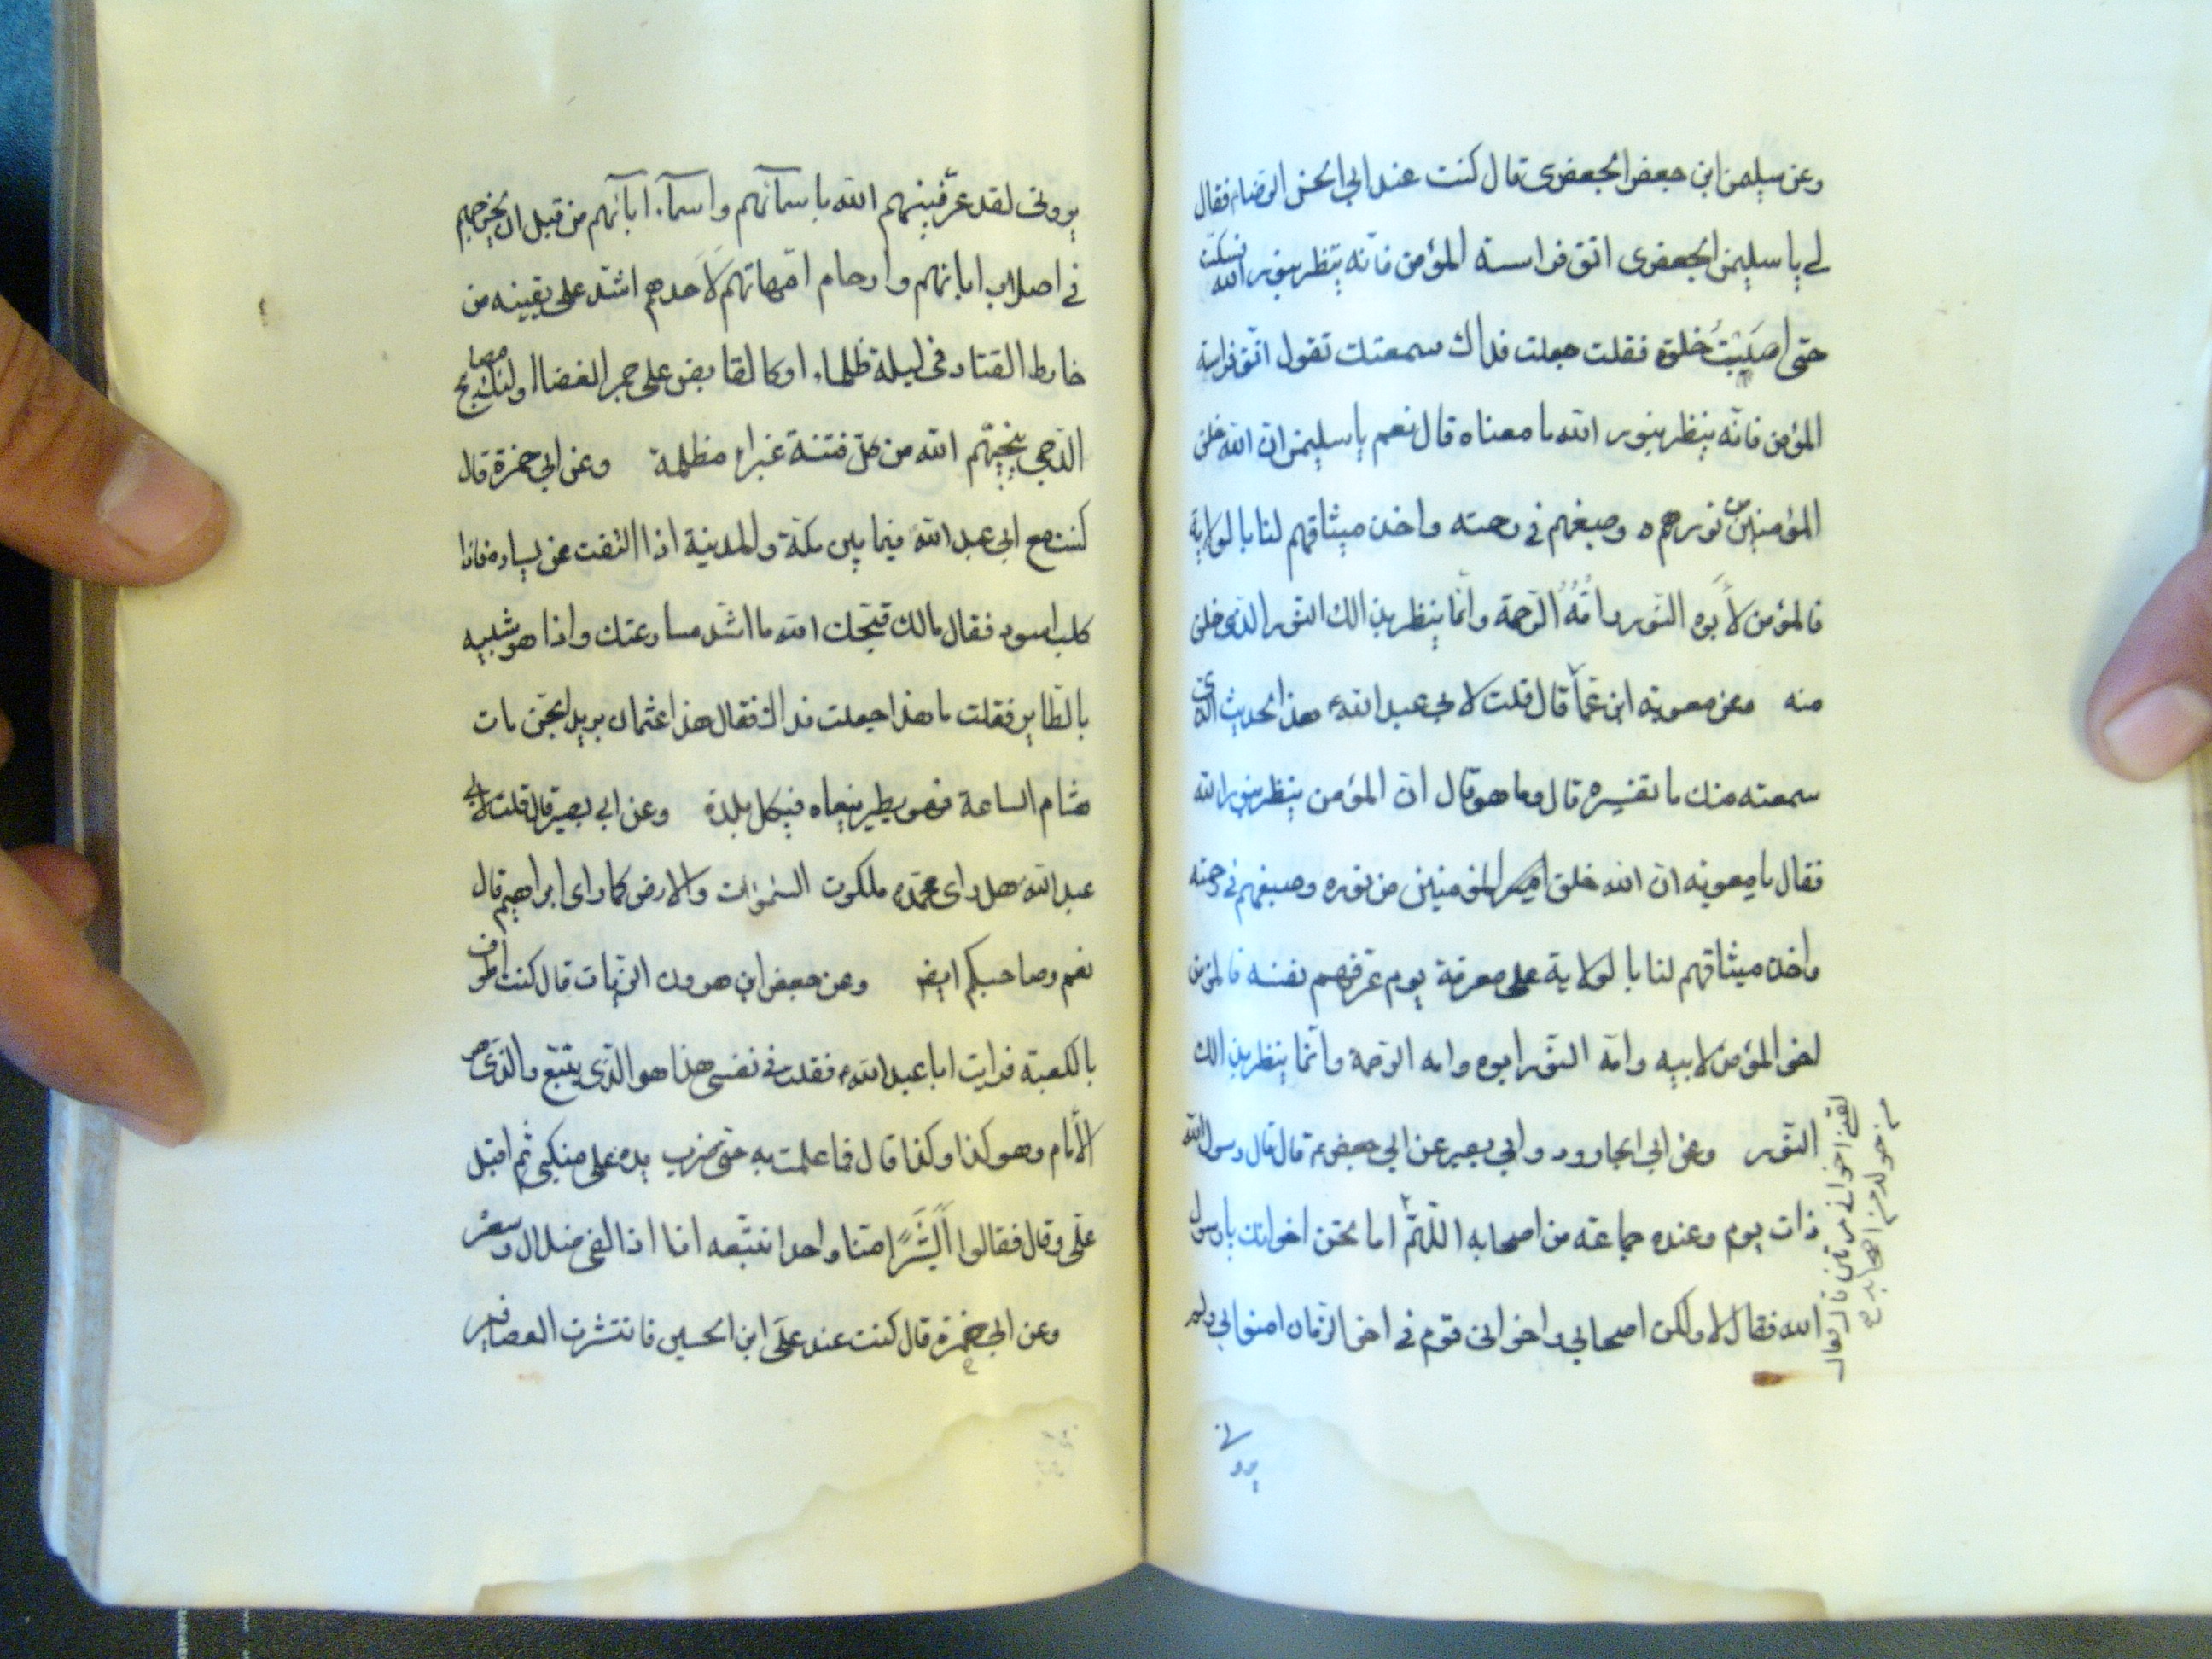 وعن سليمن ابن جعفر الجعفرى قال كنت عند ابي الحسن الرضاء فقال
لے يا سليمن الجعفرى اتق فراسة المؤمن فانه ينظر بنور الله فسكت
حتى اصبت خلوة فقلت جعلت فداك سمعتك تقول اتق فراسة
المؤمن فانه ينظر بنور الله ما معناه قال نعم يا سليمن ان الله خلق
المؤمنين من نوره وصبغهم في رحمته واخذ ميثاقهم لنا بالولاية
فالمؤمن لأبوه النور وامّه الرّحمة وانّما ينظر بذالك النّور الذى خلق
منه وعن معوية ابن عمّا قال قلت لابي عبد الله ع هذا الحديث الذى
سمعته منك ما تفسيره قال وما هو قال ان المؤمن ينظر بنور الله
فقال يا معوية ان الله خلق المؤمنين من نوره وصبغهم في رحمته
واخذ ميثاقهم لنا بالولاية على معرفة يوم عرّفهم نفسه فالمؤمن
اخو المؤمن لابيه وامّه النّور ابوه وامه الرّحمة وانّما ينظر بذالك
النّور وعن ابي الجارود وابي بصير عن ابي جعفر ع قال قال رسول الله
ذات يوم وعنده جماعة من اصحابه اللّهمّ اما نحن اخوانك يا رسول
الله فقال لا ولكن اصحابي واخوانى قوم في اخر الزّمان امنوا بي ولم
لقنى اخوانے مرتين قال فقال
من حوله من اصحابه
يرونى
يرونى لقد عرّفنيهم الله باسمآئهم واسمآء ابآئهم من قبل ان يخرجهم
في اصلاب ابائهم وارحام امّهاتهم لَاَحدهم اشدّ على يقينه من
خارط القتاد فى ليلة ظلماء او كالقابض على جمر الغضا اولئك مصابيح
الدّجى ينجيهم الله من كلّ فتنة غبراء مظلمة وعن ابي حمزة قال
كنت مع ابي عبد الله ع فيما بين مكّة والمدينة اذا التفت عن يساره فاذا
كلب اسود فقال مالك قبّحك الله ما اشدّ مسارعتك واذا هو شبيه
بالطّاير فقلت ما هذا جعلت فداك فقال هذا عثمان بريد الجن مات
هشام الساعة فهو يطير ينعاه في كل بلدة وعن ابي بصير قال قلت لابي
عبد الله ع هل راى محمّد ملكوت السّموات والارض كما راى ابراهيم قال
نعم وصاحبكم ايض وعن جعفر ابن هرون الزيات قال كنت اطوف
بالكعبة فرايت ابا عبد الله ع فقلت في نفسى هذا هو الذى يتّبع والذى هو
الأمام وهو كذا وكذا قال فما علمت به حتى ضرب يده على منكبى ثم اقبل
علّى وقال فقالوا اَبَشَرًا منّا واحدا نتّبعه انا اذا لفى ضلال وسعر
وعن ابي حمزة قال كنت عند علىّ ابن الحسين فانتشرت العصافير